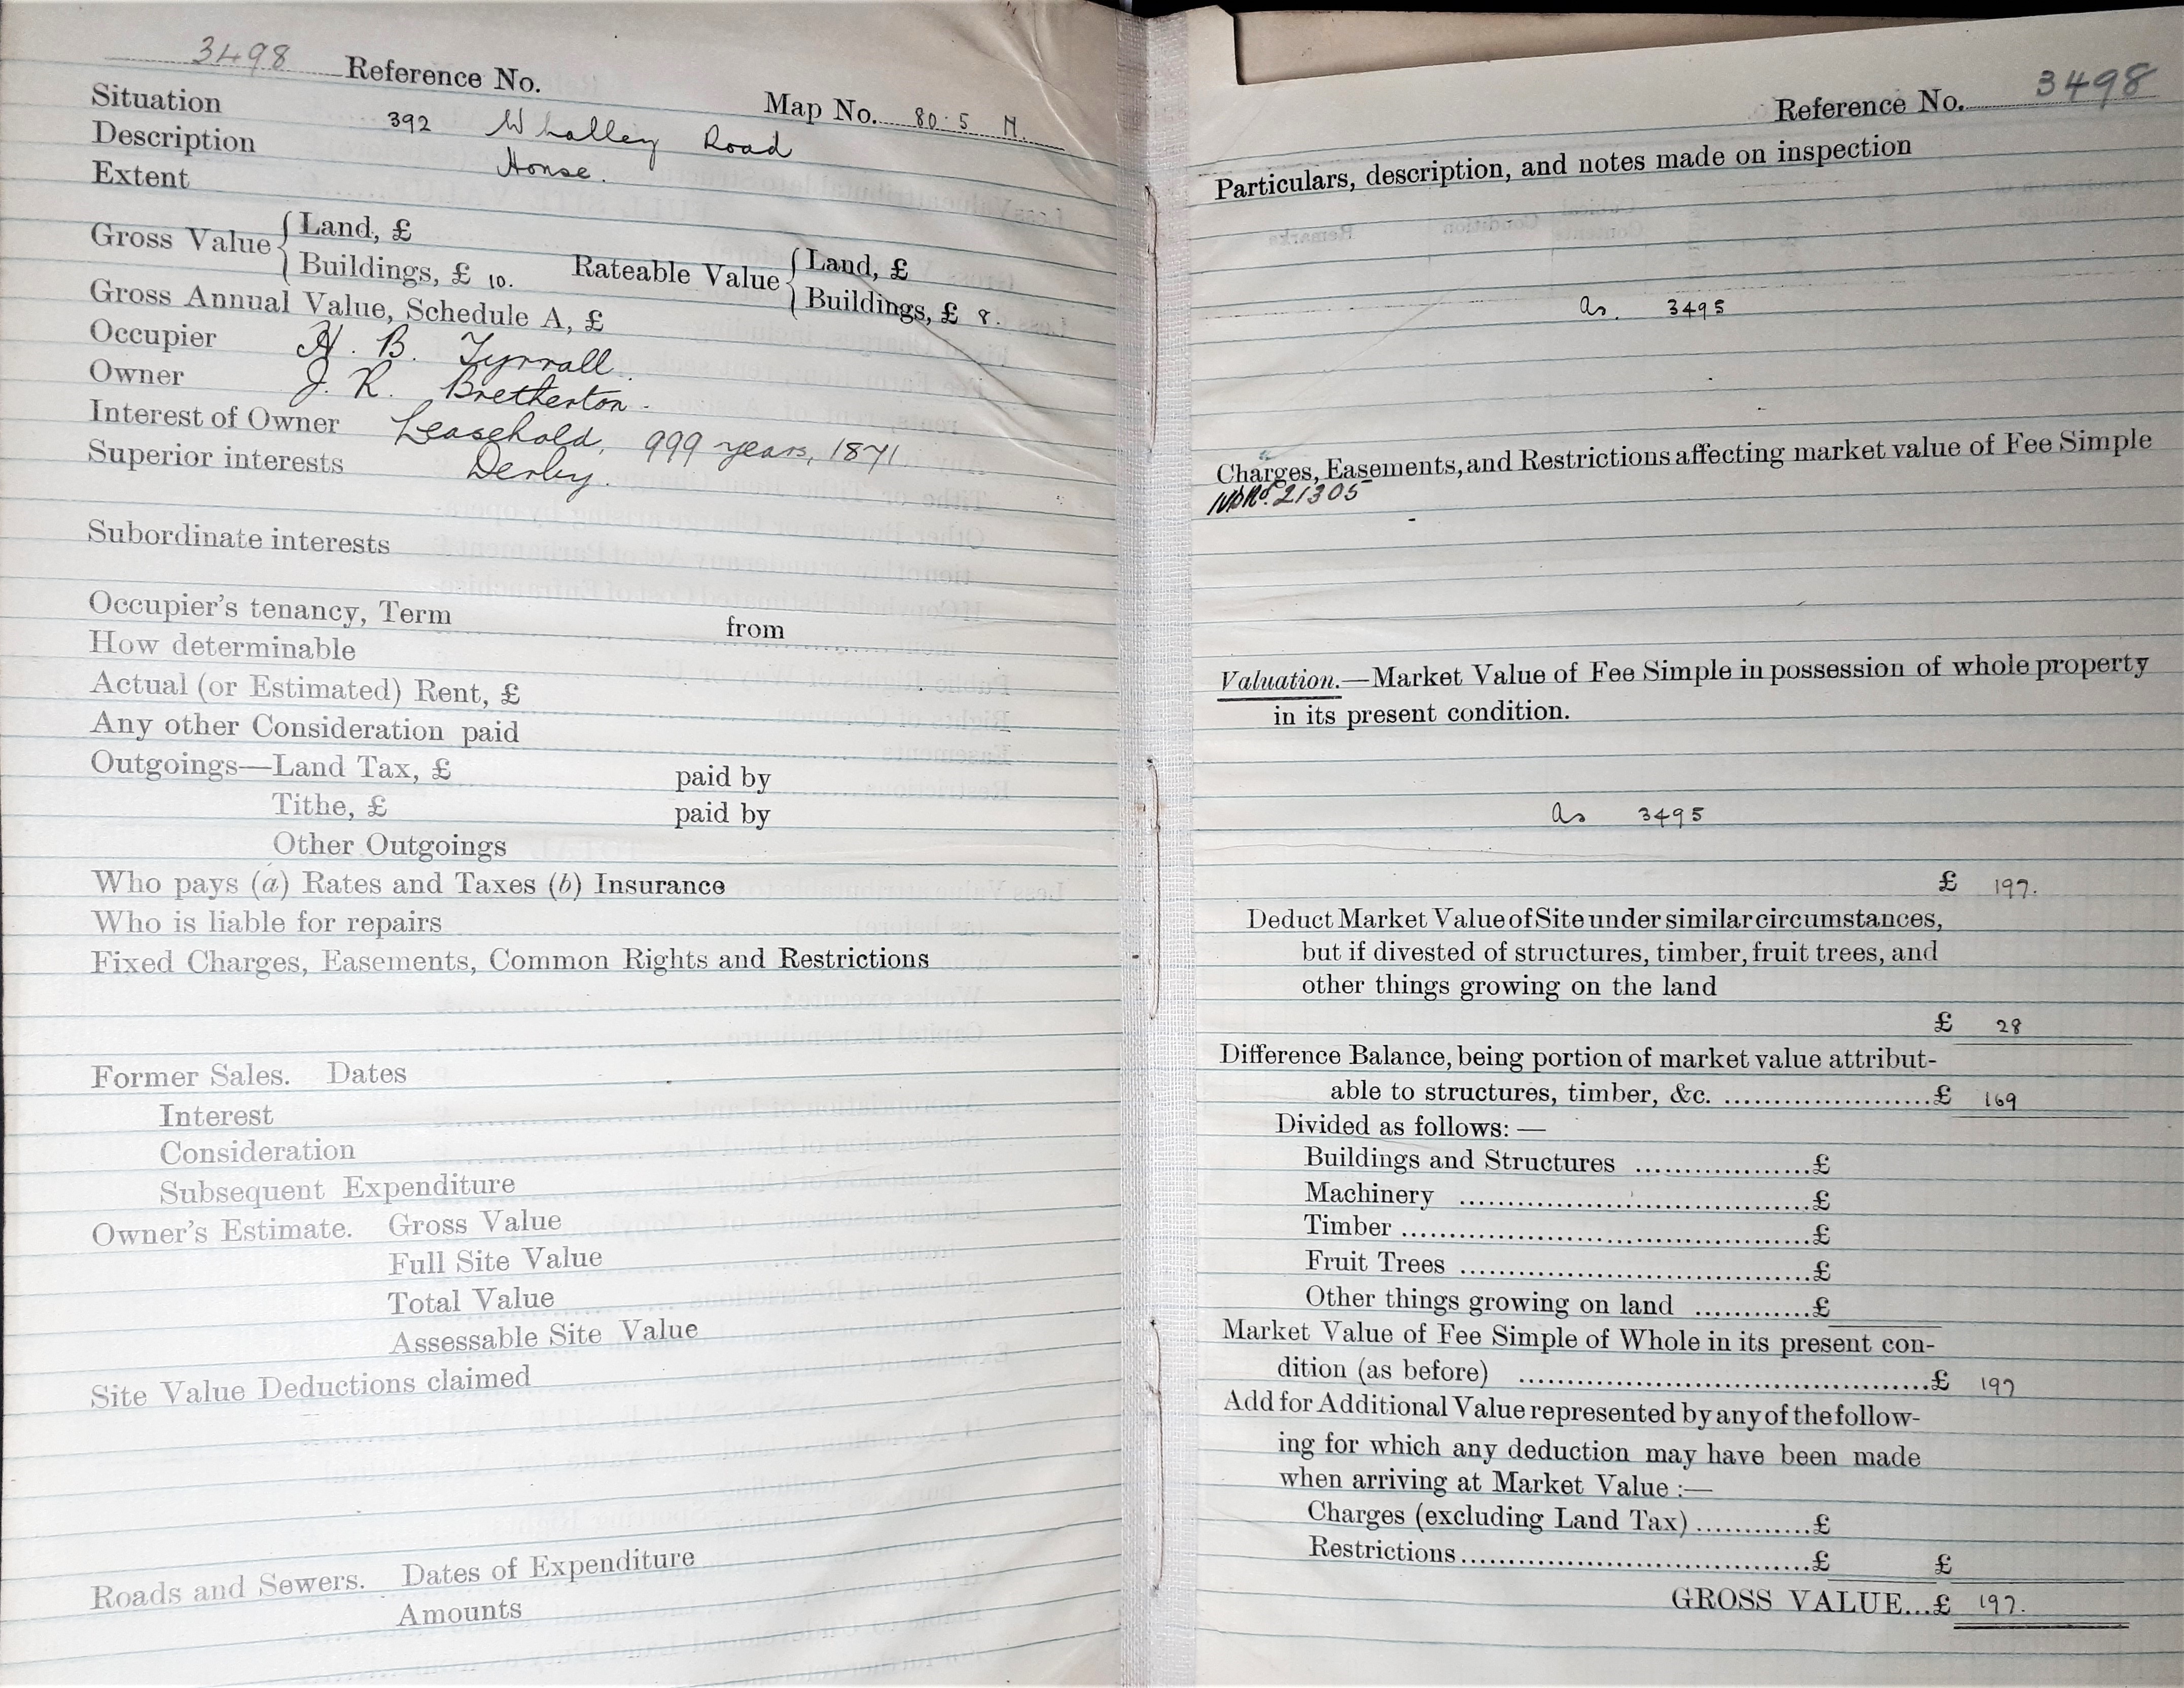 3498 Reference No.
Map No. 80.5 N.
Situation 392 Whalley Road
Description House.
Extent
Gross Value { Land, £
Buildings, £ 10. Rateable Value { Land, £
Buildings, £ 8.
Gross Annual Value, Schedule A, £
Occupier H. B. Tyrrall.
Owner J. R. Bretherton.
Interest of Owner Leasehold, 999 years, 1871.
Superior interests Derby.
Subordinate interests
Occupier's tenancy, Term from
How determinable
Actual (or Estimated) Rent, £
Any other Consideration paid
Outgoings—Land Tax, £ paid by
Tithe, £ paid by
Other Outgoings
Who pays (a) Rates and Taxes (b) Insurance
Who is liable for repairs
Fixed Charges, Easements, Common Rights and Restrictions
Former Sales. Dates
Interest
Consideration
Subsequent Expenditure
Owner's Estimate. Gross Value
Full Site Value
Total Value
Assessable Site Value
Site Value Deductions claimed
Roads and Sewers. Dates of Expenditure
Amounts
Reference No. 3498
Particulars, description, and notes made on inspection
As. 3495
Charges, Easements, and Restrictions affecting market value of Fee Simple
No. 21305
Valuation.—Market Value of Fee Simple in possession of whole property
in its present condition.
As 3495
£ 197.
Deduct Market Value of Site under similar circumstances,
but if divested of structures, timber, fruit trees, and
other things growing on the land
£ 28
Difference Balance, being portion of market value attribut-
able to structures, timber, &c. ......................£ 169
Divided as follows: —
Buildings and Structures ..................£
Machinery ....................................£
Timber ..........................................£
Fruit Trees ....................................£
Other things growing on land ............£
Market Value of Fee Simple of Whole in its present con-
dition (as before) ..........................................£ 197
Add for Additional Value represented by any of the follow-
ing for which any deduction may have been made
when arriving at Market Value :—
Charges (excluding Land Tax) ............£
Restrictions ....................................£ £
GROSS VALUE...£ 197.